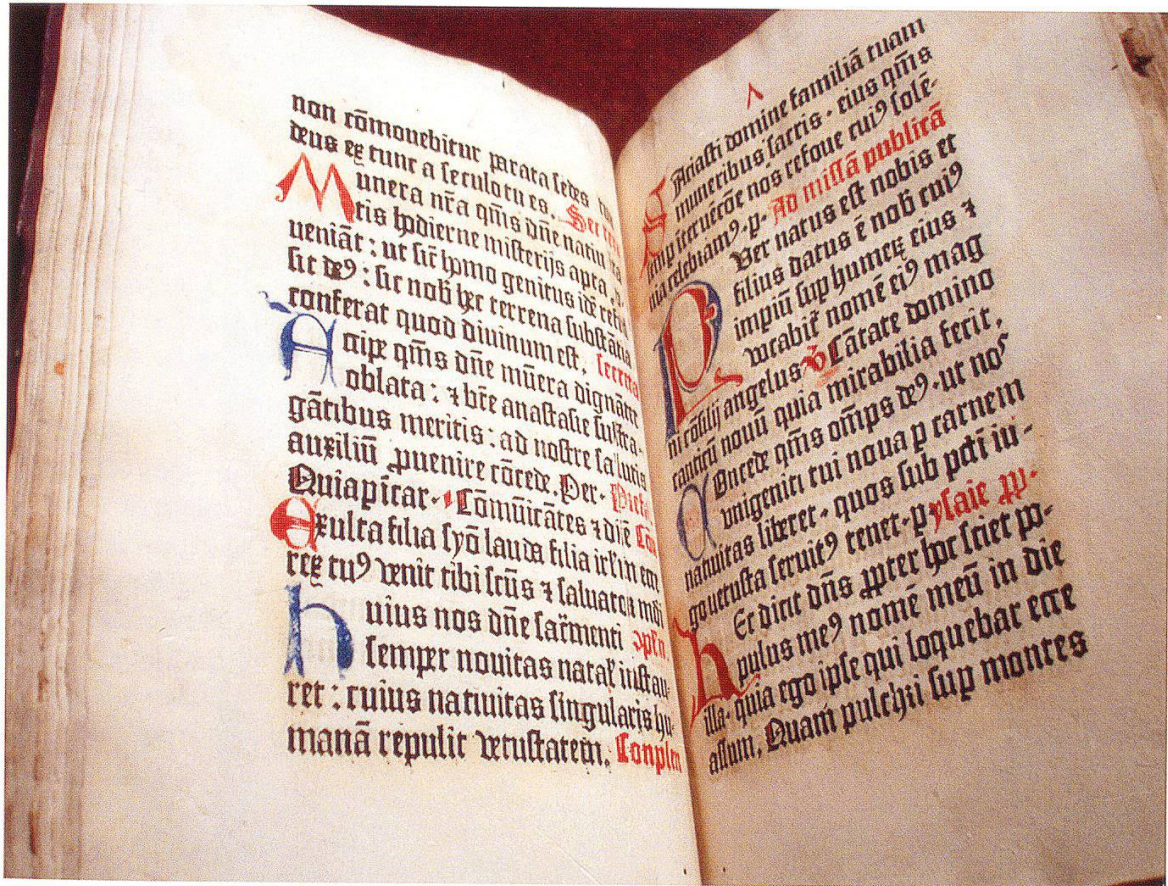 non cōmouebitur parata sedes
deus ex tunc a seculo tu es. Secreta
Munera nr̄a qm̄s dn̄e natiuita
tis hodierne misterijs apta
ueniāt : ut sic̄ homo genitus idē
sit deꝰ : sic nob̄ hec terrena substātia
conferat quod diuinum est. secreta
Accipe qm̄s dn̄e mūera dignāter
oblata : ⁊ btē anastasie suffra-
gātibus meritis : ad nostre salutis
auxiliū ꝓuenire cōcede. Per.
Quia p ī car. Cōmūicātes ⁊ diē Cōō
Exulta filia syō lauda filia irl̄m ecce
rex tuꝰ venit tibi scūs ⁊ saluator mūdi
huius nos dn̄e sacr̄menti ꝯplēn
semper nouitas natal̄ instau-
ret : cuius natiuitas singularis hu-
manā repulit vetustatem. Conplen
Saciasti domine familiā tuam
muneribus sacris. eius qm̄s
semp ītercuēcōe nos refoue cuiꝰ solē-
nia celebramꝰ. p. Ad missā publicā
Puer natus est nobis et
filius datus ē nob̄ cuiꝰ
impiū sup humeꝝ eius ⁊
vocabit̄ nomē eiꝰ mag
ni cōsilij angelus Cātate domino
canticū nouū quia mirabilia fecit.
Concede qm̄s om̄ps deꝰ. ut noˢ
vnigeniti tui noua p carnem
natiuitas liberet. quos sub pcti iu-
go uetusta seruitꝰ tenet. p ysaie ꝓp.
Hec dicit dn̄s ꝓpter hoc sciet po-
pulus meꝰ nomē meū in die
illa. quia ego ipse qui loquebar ecce
assum. Quam pulchri sup montes